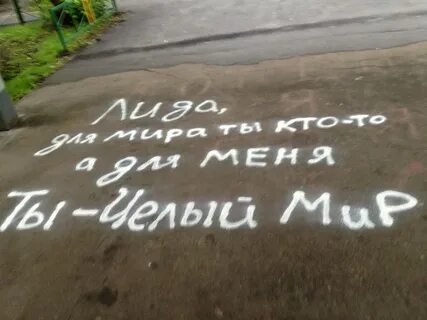 Лида,
для мира ты кто-то
а для меня
Ты - Целый Мир